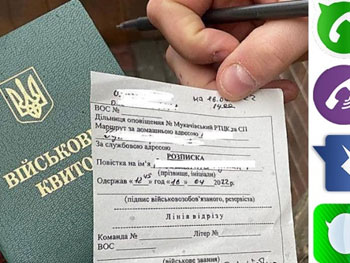 ВІЙСЬКОВ
КВИТО
на 16.04. 22
14.00
ВОС №
Дільниця оповіщення № Мукачівський РТЦК та СП
Маршрут за домашньою адресою
За службовою адресою
РОЗПИСКА
Повістка на ім'я
(прізвище, ініціали)
Одержав «12 45» год «16» 04 2022р.
(підпис військовозобов'язаного, резервіста)
Лінія відрізу
Команда № Літер №
ВОС
(військове звання)